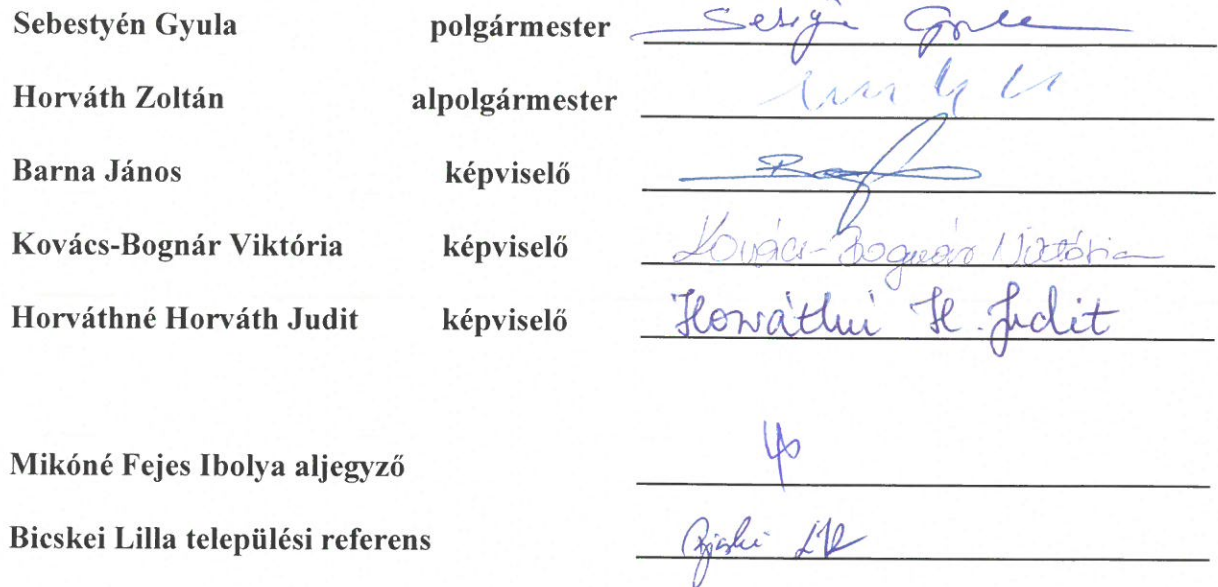 Sebestyén Gyula polgármester
Horváth Zoltán alpolgármester
Barna János képviselő
Kovács-Bognár Viktória képviselő Kovács-Bognár Viktória
Horváthné Horváth Judit képviselő Horváthné H. Judit
Mikóné Fejes Ibolya aljegyző
Bicskei Lilla települési referens